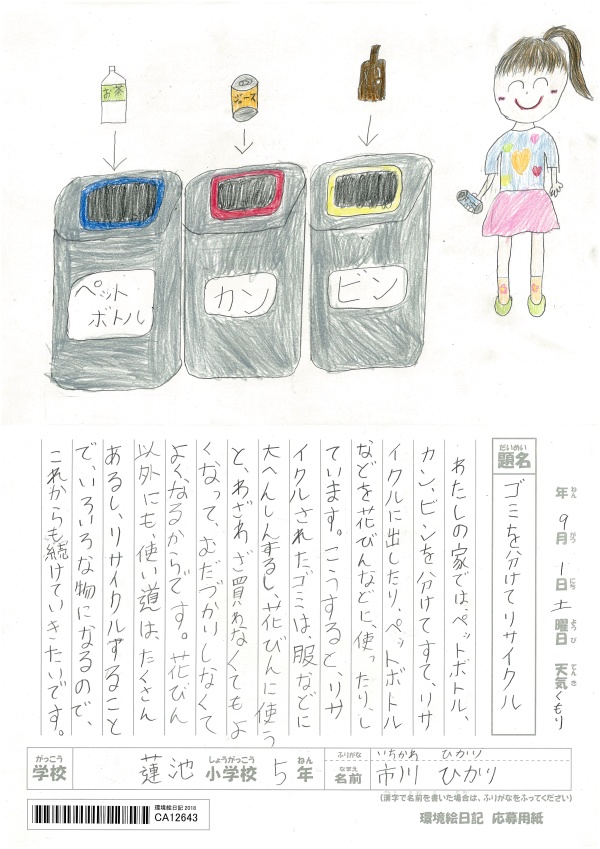 お茶
ジュース
ペット
ボトル
カン
ビン
年 ねん 9月 がつ 1日 にち 土曜日 ようび 天気 てんき くもり
だいめい
題名
ゴミを分けてリサイクル
わたしの家では、ペットボトル、
カン、ビンを分けてすて、リサ
イクルに出したり、ペットボトル
などを花びんなどに、使ったりし
ています。こうすると、リサ
イクルされたゴミは、服などに
大へんしんするし、花びんに使う
と、わざわざ買わなくてもよ
くなって、むだづかいしなくて
よくなるからです。花びん
以外にも、使い道は、たくさん
あるし、リサイクルすること
で、いろいろな物になるので、
これからも続けていきたいです。
がっこう しょうがっこう ねん
学校 蓮池 小学校 5 年
ふりがな いちかわ ひかり
なまえ
名前 市川 ひかり
(漢字で名前を書いた場合は、ふりがなをふってください)
環境絵日記 応募用紙
環境絵日記 2018
CA12643